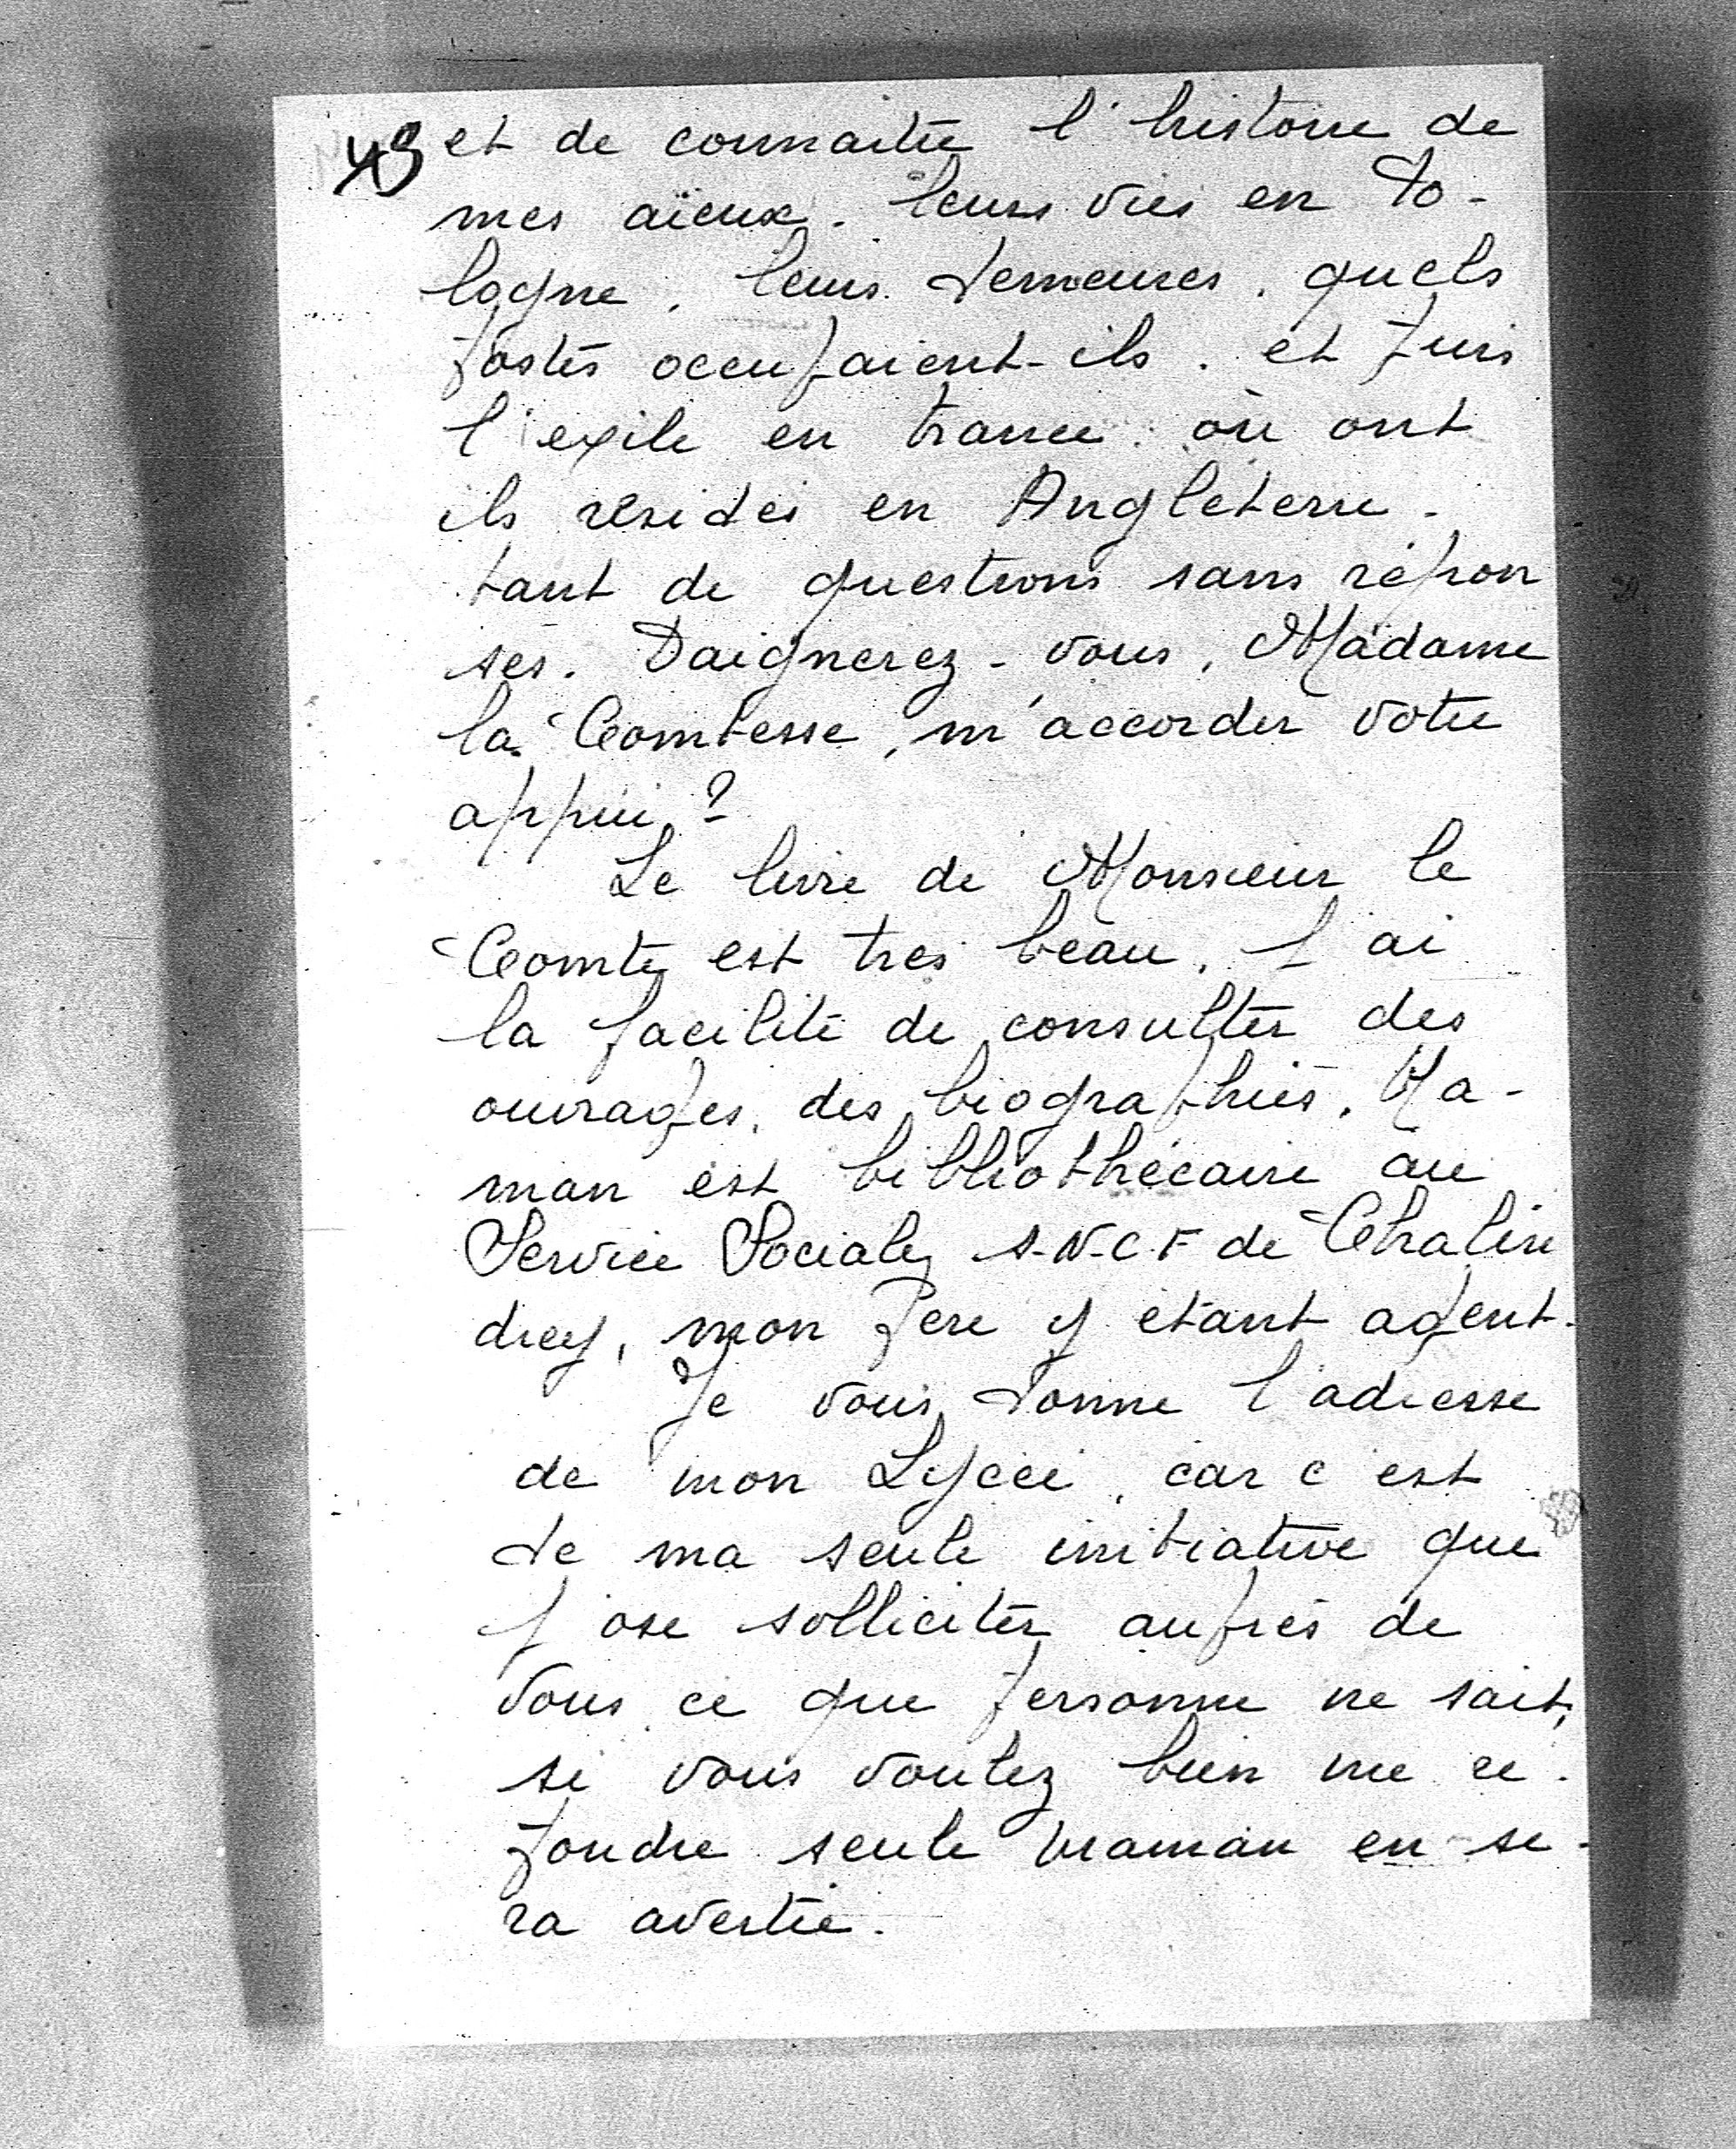 43 et de connaitre l'histoire de
mes aïeux. leurs vies en Po-
logne, leurs demeures, quels
postes occupaient-ils. et puis
l'exile en France. où ont
ils résidés en Angleterre.
tant de questions sans répon
ses. Daignerez-vous, Madame
la Comtesse, m'accorder votre
appui ?
Le livre de Monsieur le
Comte est très beau. J'ai
la facilité de consulter des
ouvrages, des biographies. Ma-
man est bibliothécaire au
Service Sociale S.N.C.F de Chalin
drey, mon père y étant agent.
Je vous donne l'adresse
de mon Lycée, car c'est
de ma seule initiative que
j'ose solliciter auprès de
vous ce que personne ne sait,
si vous voulez bien me ré-
pondre seule maman en se-
ra avertie.